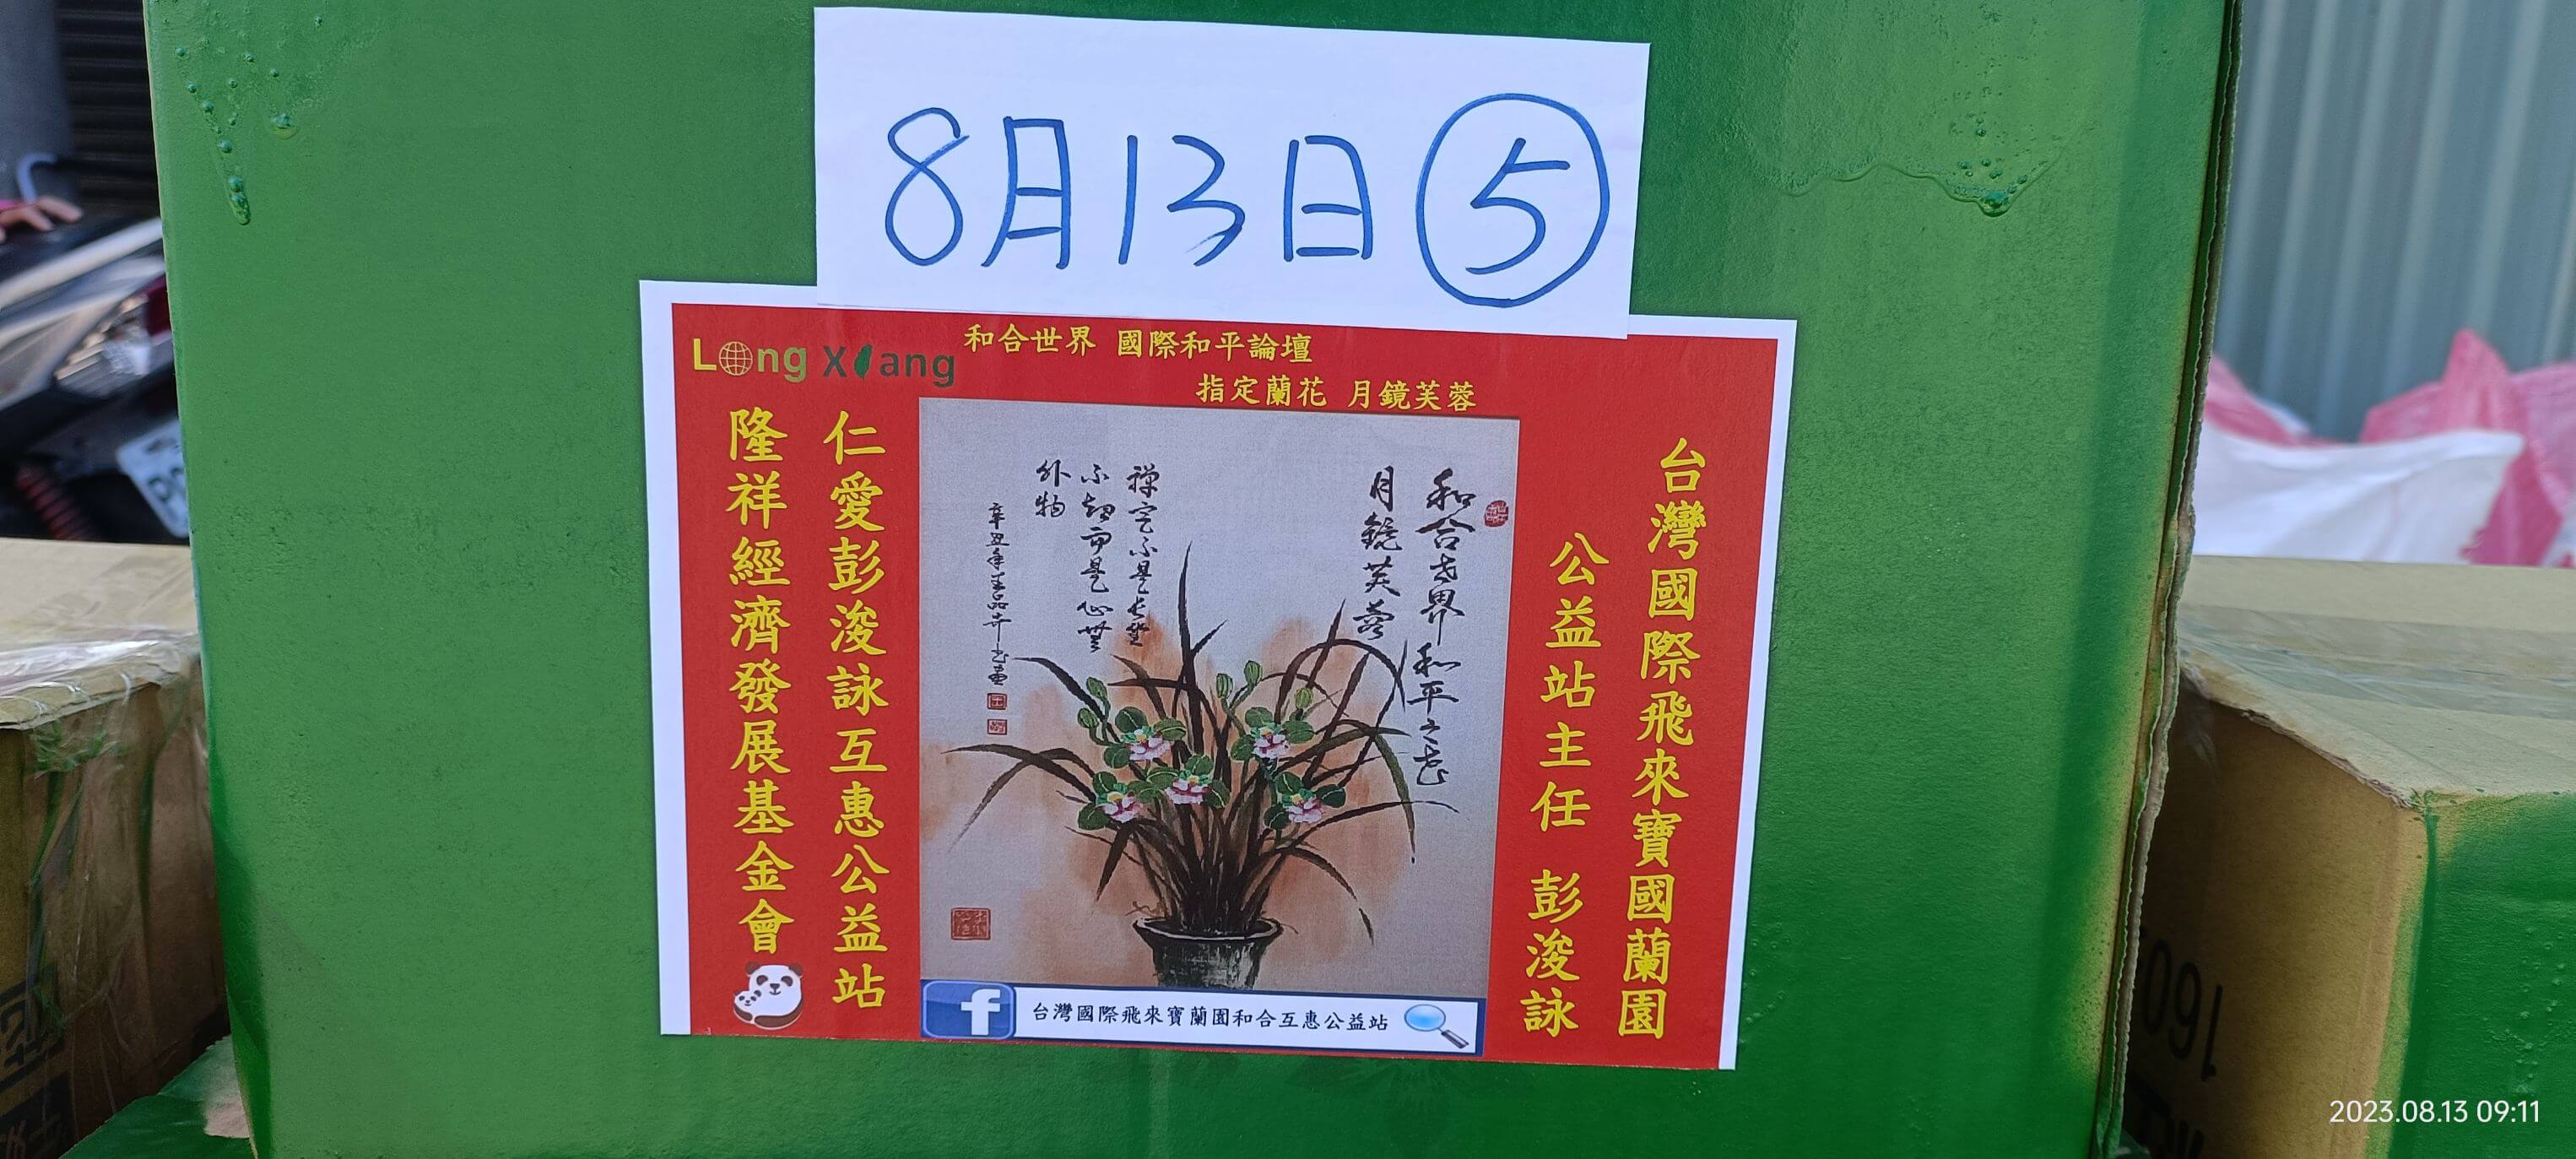 8月13日 ⑤
Long Xiang
和合世界 國際和平論壇
指定蘭花 月鏡芙蓉
台灣國際飛來寶國蘭園
公益站主任 彭浚詠
仁愛彭浚詠互惠公益站
隆祥經濟發展基金會
和合世界和平之花
月鏡芙蓉
禪定不是長坐
不起而是心無
外物
台灣國際飛來寶蘭園和合互惠公益站
2023.08.13 09:11